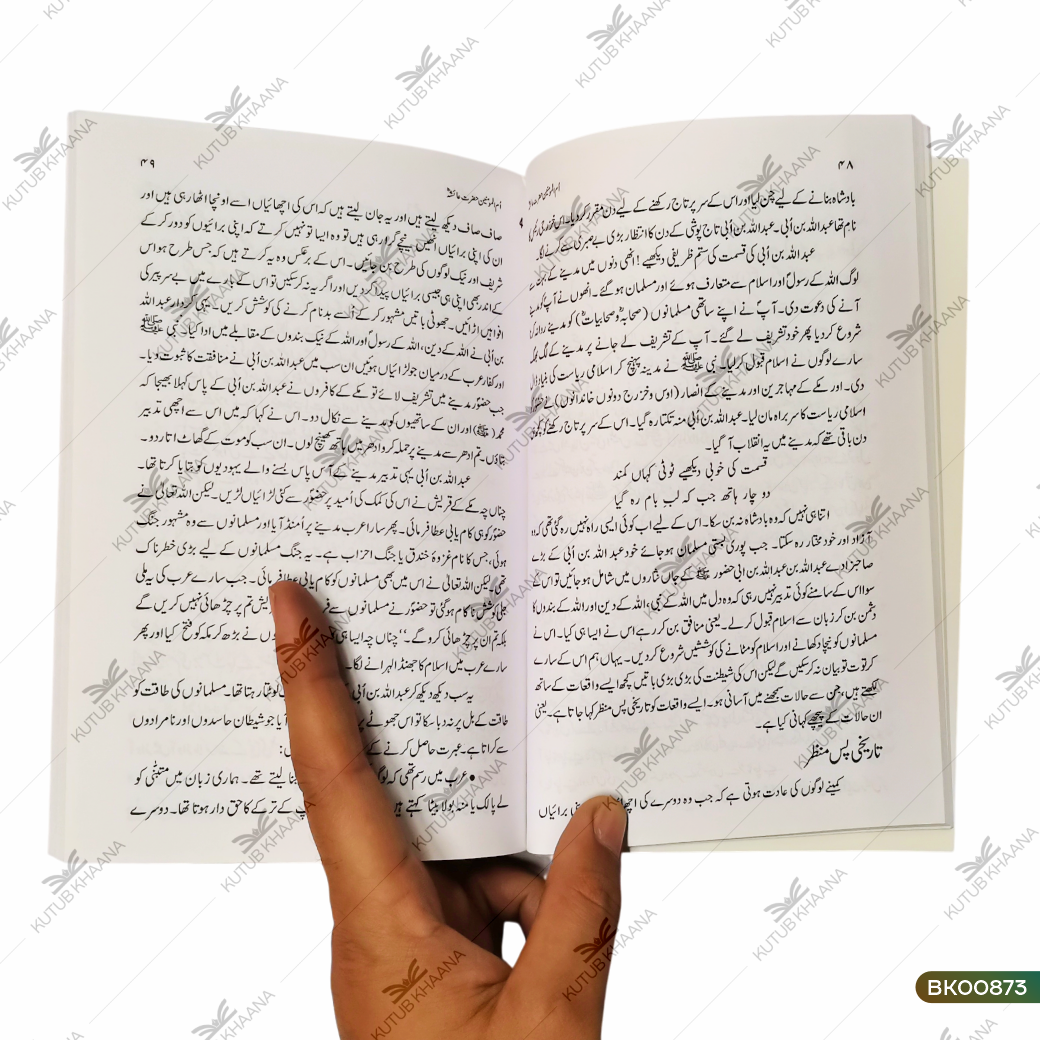 ۴۸
اُم المومنین حضرت عائشہؓ
بادشاہ بنانے کے لیے چن لیا اور اس کے سر پر تاج رکھنے کے لیے دن مقرر کر دیا۔ اس
نام تھا عبداللہ بن اُبی۔ عبداللہ بن اُبی تاج پوشی کے دن کا انتظار بڑی بے صبری سے کرنے لگا۔
عبداللہ بن اُبی کی قسمت کی ستم ظریفی دیکھیے! انھی دنوں میں مدینے کے بہت سے
لوگ اللہ کے رسولؐ اور اسلام سے متعارف ہوئے اور مسلمان ہو گئے۔ انھوں نے آپؐ کو مدینے
آنے کی دعوت دی۔ آپؐ نے اپنے ساتھی مسلمانوں (صحابہؓ و صحابیاتؓ) کو مدینے روانہ کرنا
شروع کر دیا پھر خود تشریف لے گئے۔ آپ کے تشریف لے جانے پر مدینے کے لگ بھگ
سارے لوگوں نے اسلام قبول کر لیا۔ نبی ﷺ نے مدینہ پہنچ کر اسلامی ریاست کی بنیاد ڈال
دی۔ اور مکے کے مہاجرین اور مدینے کے انصار (اوس و خزرج دونوں خاندانوں) نے حضورؐ کو
اسلامی ریاست کا سربراہ مان لیا۔ عبداللہ بن اُبی منہ تکتا رہ گیا۔ اس کے سر پر تاج رکھنے کو کچھ ہی
دن باقی تھے کہ مدینے میں یہ انقلاب آ گیا۔
قسمت کی خوبی دیکھیے ٹوٹی کہاں کمند
دو چار ہاتھ جب کہ لب بام رہ گیا
اتنا ہی نہیں کہ وہ بادشاہ نہ بن سکا۔ اس کے لیے اب کوئی ایسی راہ نہیں رہ گئی تھی کہ وہ
آزاد اور خود مختار رہ سکتا۔ جب پوری بستی مسلمان ہو جائے خود عبداللہ بن اُبی کے بڑے
صاحبزادے عبداللہ بن عبداللہ بن ابی حضور ﷺ کے جاں نثاروں میں شامل ہو جائیں تو اس کے
سوا اس کے سامنے کوئی تدبیر نہیں رہی کہ وہ دل میں اللہ کے نبی، اللہ کے دین اور اللہ کے بندوں کا
دشمن بن کر زبان سے اسلام قبول کر لے۔ یعنی منافق بن کر رہے اس نے ایسا ہی کیا۔ اس نے
مسلمانوں کو نیچا دکھانے اور اسلام کو مٹانے کی کوششیں شروع کر دیں۔ یہاں ہم اس کے سارے
کرتوت تو بیان نہ کر سکیں گے لیکن اس کی شیطنت کی بڑی بڑی باتیں کچھ ایسے واقعات کے ساتھ
لکھتے ہیں، جن سے حالات سمجھنے میں آسانی ہو۔ ایسے واقعات کو تاریخی پس منظر کہا جاتا ہے۔ یعنی
ان حالات کے پیچھے کہانی کیا ہے۔
تاریخی پس منظر
کمینے لوگوں کی عادت ہوتی ہے کہ جب وہ دوسرے کی برائیاں
۴۹
اُم المومنین حضرت عائشہؓ
صاف صاف دیکھ لیتے ہیں اور یہ جان لیتے ہیں کہ اس کی اچھائیاں اسے اونچا اٹھا رہی ہیں اور
ان کی اپنی برائیاں انھیں نیچے گرا رہی ہیں تو وہ ایسا تو نہیں کرتے کہ اپنی برائیوں کو دور کر کے
شریف اور نیک لوگوں کی طرح بن جائیں۔ اس کے برعکس وہ یہ کرتے ہیں کہ جس طرح ہو اس
کے اندر بھی اپنی ہی جیسی برائیاں پیدا کر دیں اور اگر یہ نہ کر سکیں تو اس کے بارے میں بے سر پیر کی
افواہیں اڑائیں۔ جھوٹی باتیں مشہور کر کے اسے بدنام کرنے کی کوشش کریں۔ یہی کردار عبداللہ
بن اُبی نے اللہ کے دین، اللہ کے رسولؐ اور اللہ کے نیک بندوں کے مقابلے میں ادا کیا۔ نبی ﷺ
اور کفار عرب کے درمیان جو لڑائیاں ہوئیں ان سب میں عبداللہ بن اُبی نے منافقت کا ثبوت دیا۔
جب حضورؐ مدینے میں تشریف لائے تو مکے کے کافروں نے عبداللہ بن اُبی کے پاس کہلا بھیجا کہ
محمد (ﷺ) اور ان کے ساتھیوں کو مدینے سے نکال دو۔ اس نے کہا کہ میں اس سے اچھی تدبیر
بتاؤں۔ تم ادھر سے مدینے پر حملہ کرو ادھر میں ہاتھ کھینچ لوں۔ ان سب کو موت کے گھاٹ اتار دو۔
عبداللہ بن اُبی یہی تدبیر مدینے کے آس پاس بسنے والے یہودیوں کو بتایا کرتا تھا۔
چناں چہ مکے کے قریش نے اس کی کمک کی اُمید پر حضورؐ سے کئی لڑائیاں لڑیں۔ لیکن اللہ تعالیٰ نے
حضورؐ کو ہی کامیابی عطا فرمائی۔ پھر سارا عرب مدینے پر اُمنڈ آیا اور مسلمانوں سے وہ مشہور جنگ
ہوئی، جس کا نام غزوۂ خندق یا جنگ احزاب ہے۔ یہ جنگ مسلمانوں کے لیے بڑی خطرناک
تھی لیکن اللہ تعالیٰ نے اس میں بھی مسلمانوں کو کامیابی عطا فرمائی۔ جب سارے عرب کی یہ ملی
جلی کوشش ناکام ہو گئی تو حضورؐ نے مسلمانوں سے تم پر چڑھائی نہیں کریں گے
بلکہ تم ان پر چڑھائی کرو گے۔‘‘ چناں چہ ایسا ہی نے بڑھ کر مکہ کو فتح کیا اور پھر
سارے عرب میں اسلام کا جھنڈا لہرانے لگا۔
یہ سب دیکھ دیکھ کر عبداللہ بن اُبی رہتا تھا۔ مسلمانوں کی طاقت کو
طاقت کے بل پر نہ دبا سکا تو اس جھوٹے آیا جو شیطان حاسدوں اور نامرادوں
سے کراتا ہے۔ عبرت حاصل کرنے کے :
● عرب میں رسم تھی کہ بنا لیتے تھے۔ ہماری زبان میں متبنّٰی کو
لے پالک یا منہ بولا بیٹا کہتے ہیں کے ترکے کا حق دار ہوتا تھا۔ دوسرے
KUTUB KHAANA
BK00873